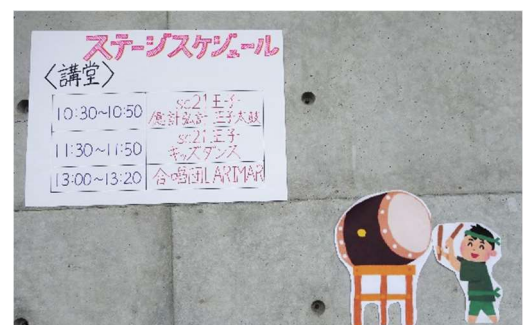 ステージスケジュール
〈講堂〉
10:30~10:50
sc21王子
王子太鼓
11:30~11:50
sc21王子
キッズダンス
13:00~13:20
合唱団LARIMAR